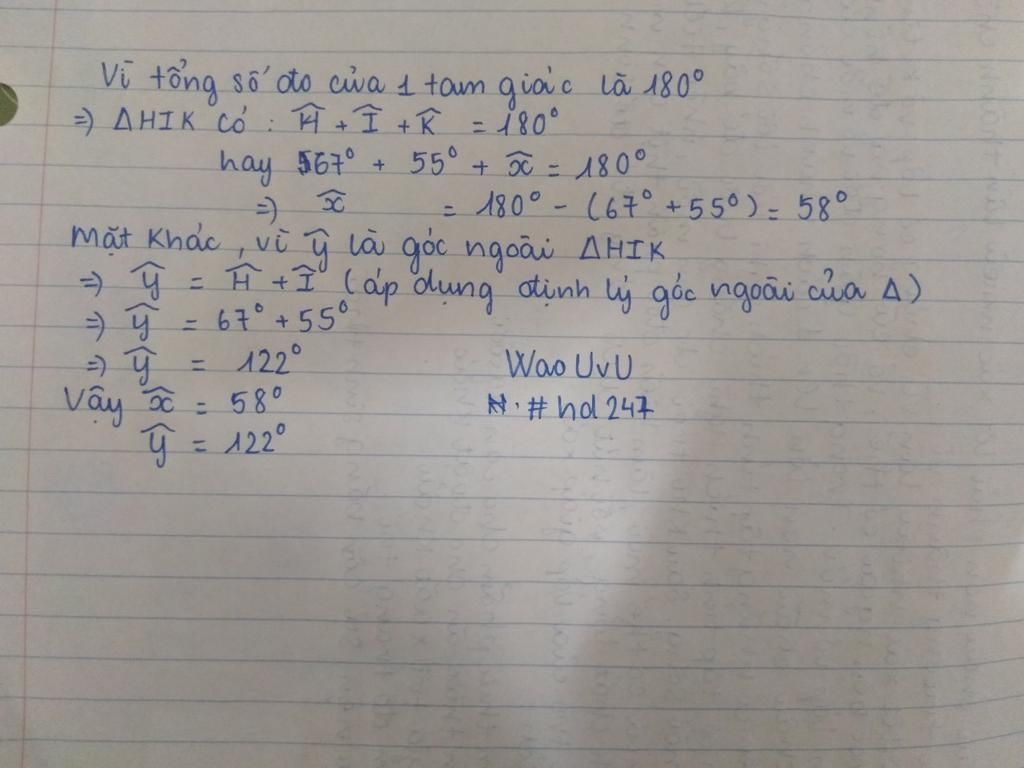 Vì tổng số đo của 1 tam giác là 180°
=> ΔHIK có : Ĥ + Î + K̂ = 180°
hay 67° + 55° + x̂ = 180°
=> x̂ = 180° - (67° + 55°) = 58°
Mặt khác, vì ŷ là góc ngoài ΔHIK
=> ŷ = Ĥ + Î (áp dụng định lý góc ngoài của Δ)
=> ŷ = 67° + 55°
=> ŷ = 122°
Wao UvU
Vậy x̂ = 58°
# hd 247
ŷ = 122°